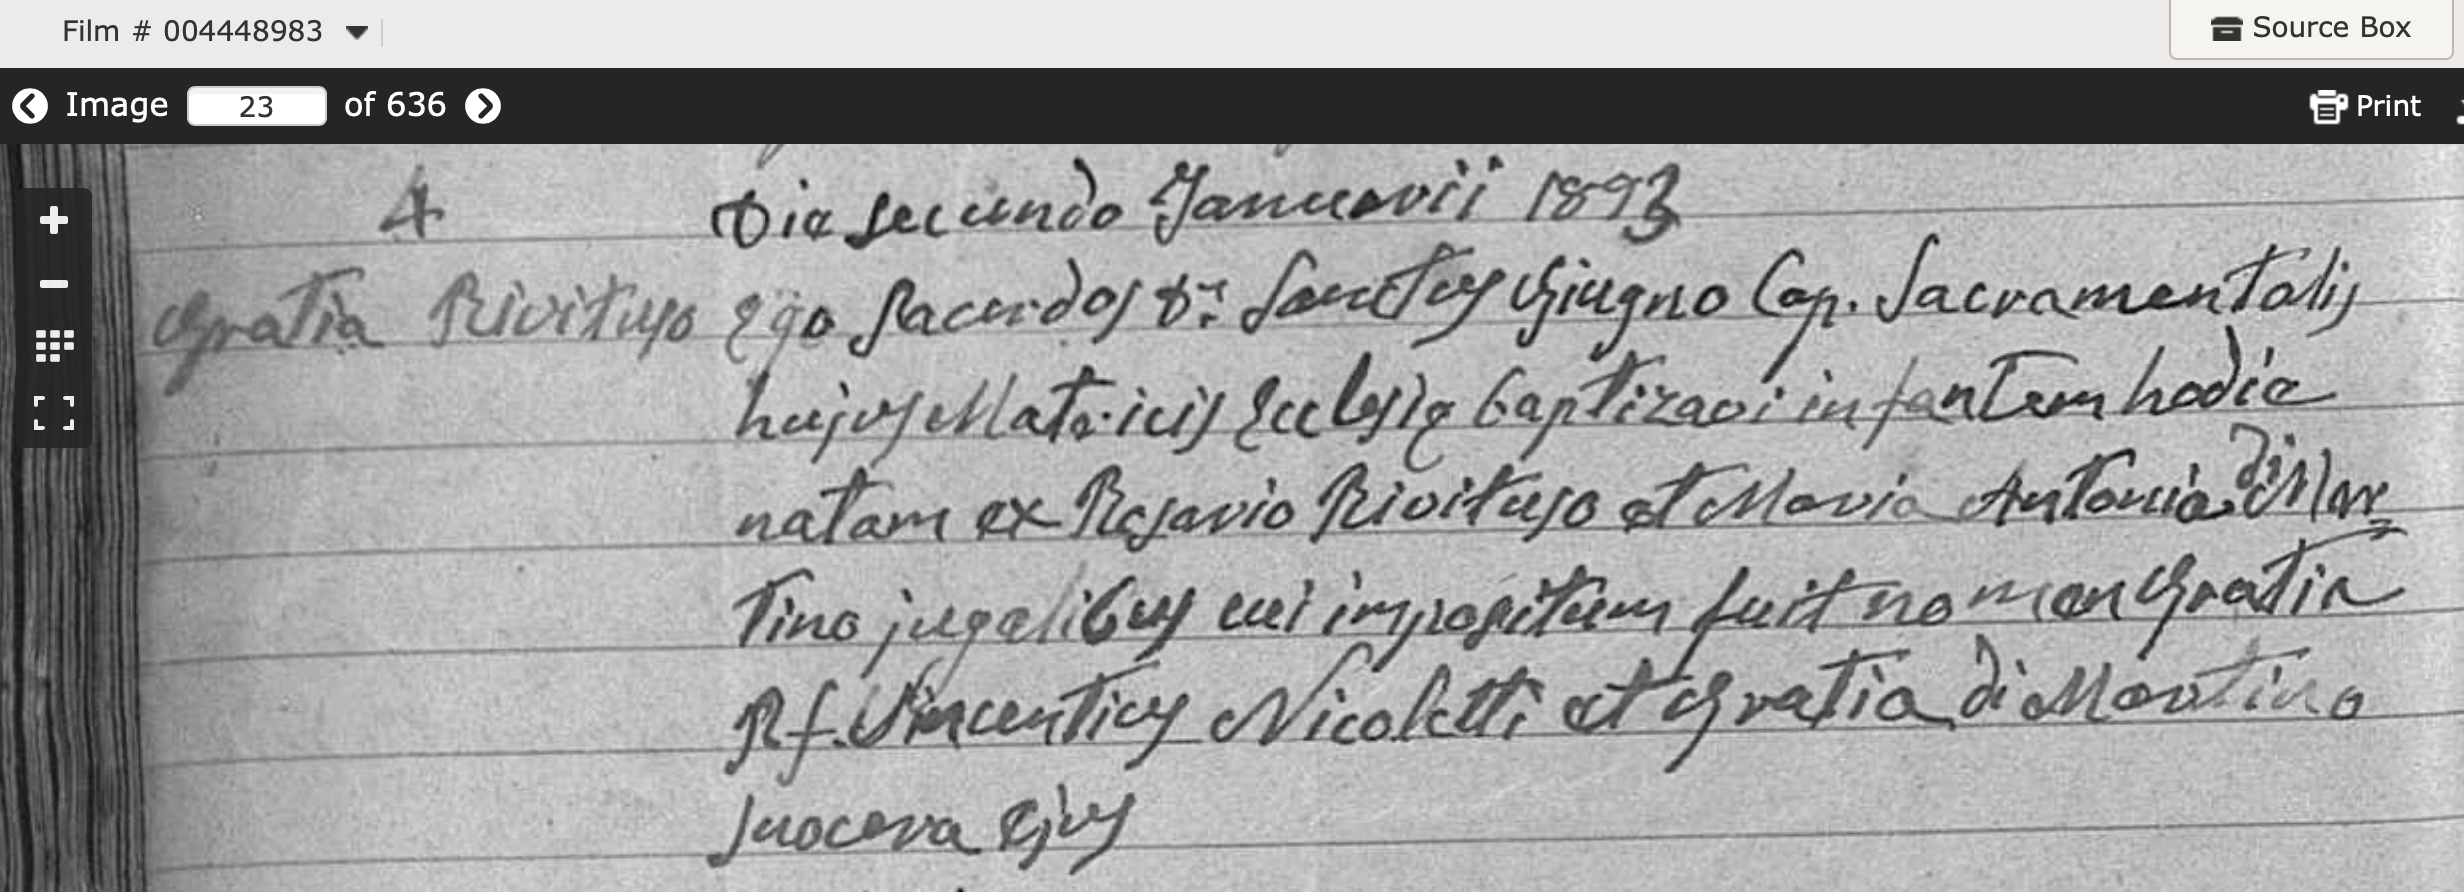 Film # 004448983
Source Box
Image 23 of 636
Print
4
Die secundo Januarii 1893
Gratia Rivituso
Ego Sacerdos Dr. Sanctus Giugno Cap. Sacramentalis
hujus Matricis Ecclesię baptizavi infantem hodie
natam ex Rosario Rivituso et Maria Antonia di Mar=
tino jugalibus cui impositum fuit nomen Gratia
Pf. Vincentius Nicoletti et Gratia di Martino
suocera ejus